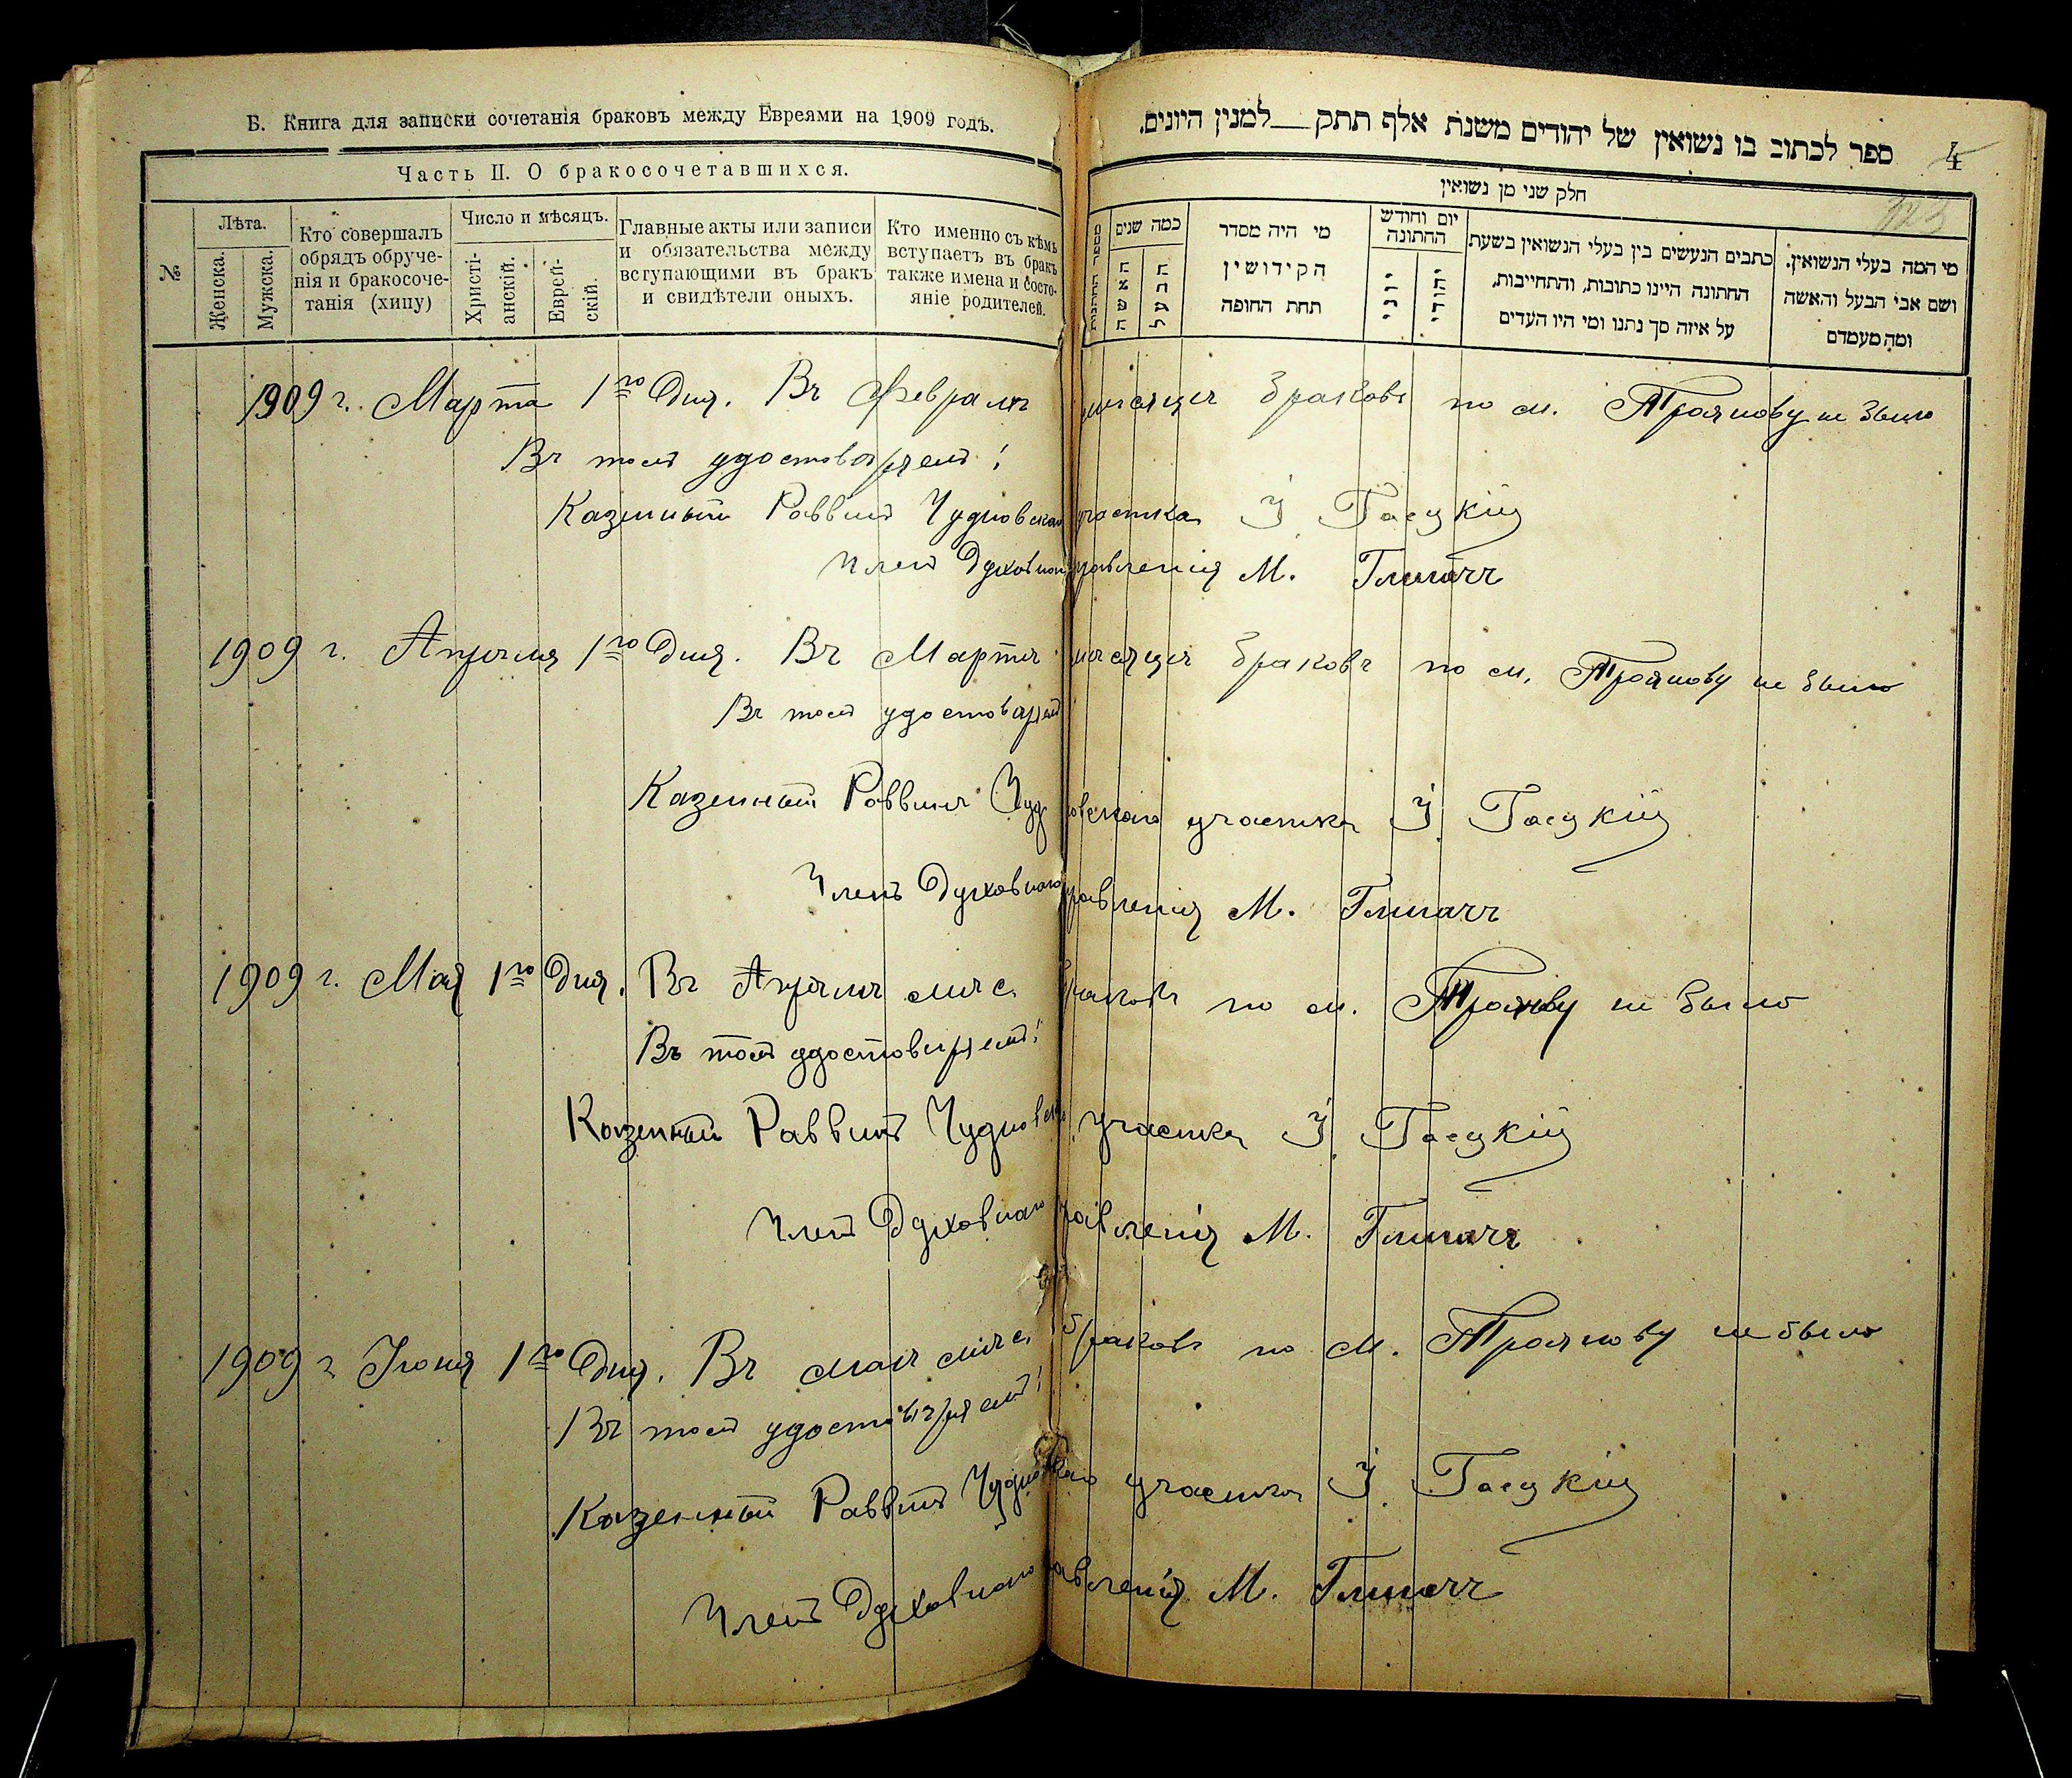 Б. Книга для записки сочетанія браковъ между Евреями на 1909 годъ.
Часть II. О бракосочетавшихся.
№
Лѣта.
Женска.
Мужска.
Кто совершалъ
обрядъ обруче-
нія и бракосоче-
танія (хипу)
Число и мѣсяцъ.
Христі-
анскій.
Еврей-
скій.
Главные акты или записи
и обязательства между
вступающими въ бракъ
и свидѣтели оныхъ.
Кто именно съ кѣмъ
вступаетъ въ бракъ
также имена и состо-
яніе родителей.
ספר לכתוב בו נשואין של יהודים משנת אלף תתק__למנין היונים.
4
חלק שני מן נשואין
מספר החתונות
כמה שנים
האשה
הבעל
מי היה מסדר
הקידושין
תחת החופה
יום וחודש
החתונה
יוני
יהודי
כתבים הנעשים בין בעלי הנשואין בשעת
החתונה היינו כתובות, והתחייבות,
על איזה סך נתנו ומי היו העדים
מי המה בעלי הנשואין.
ושם אבי הבעל והאשה
ומה מעמדם
1909 г. Марта 1го дня. Въ Февралѣ мѣсяцѣ браковъ по м. Троянову не было
Въ томъ удостовѣряемъ:
Казенный Раввинъ Чудновскаго участка І. Гасцкій
Членъ Духовнаго правленія М.
1909 г. Апрѣля 1го дня. Въ Мартѣ мѣсяцѣ браковъ по м. Троянову не было
Въ томъ удостовѣряемъ
Казенный Раввинъ Чудновскаго участка І. Гасцкій
Членъ Духовнаго правленія М.
1909 г. Мая 1го дня. Въ Апрѣлѣ мѣс. браковъ по м. Троянову не было
Въ томъ удостовѣряемъ:
Казенный Раввинъ Чудновскаго участка І. Гасцкій
Членъ Духовнаго правленія М.
1909 г. Іюня 1го дня. Въ маѣ мѣс. браковъ по м. Троянову не было
Въ томъ удостовѣряемъ:
Казенный Раввинъ Чудновскаго участка І. Гасцкій
Членъ Духовнаго правленія М.